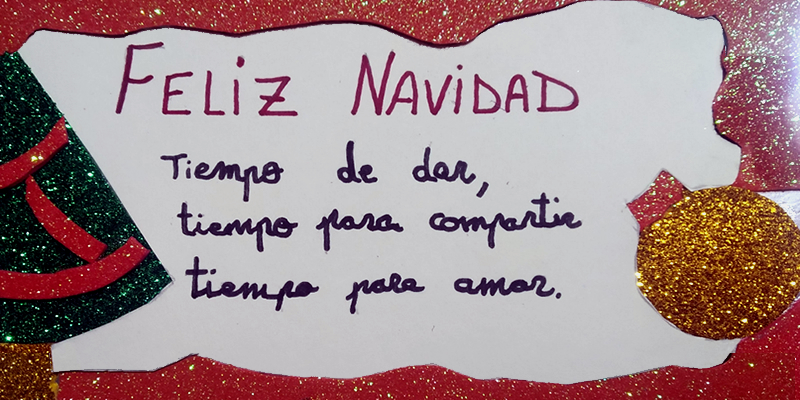 FELIZ NAVIDAD
Tiempo de dar,
tiempo para compartir
tiempo para amar.